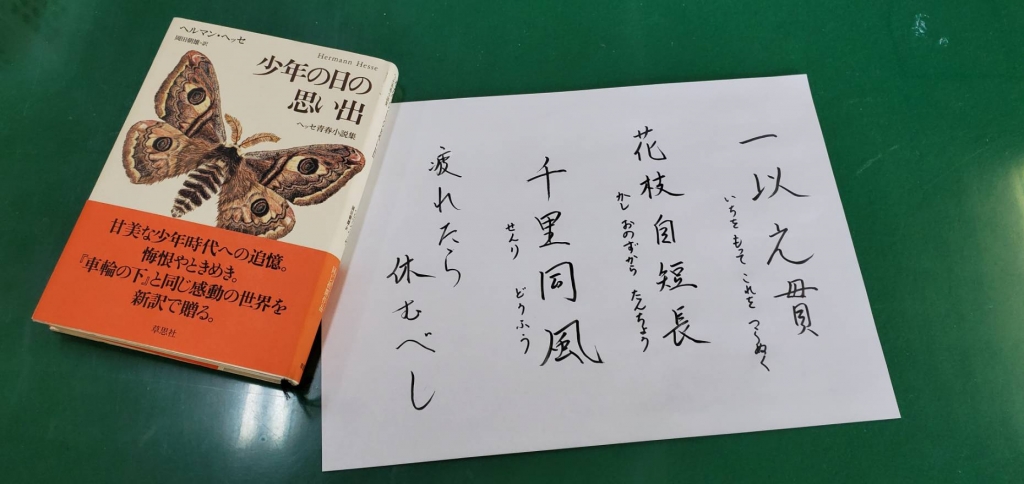 ヘルマン・ヘッセ
岡田朝雄・訳
Hermann Hesse
少年の日の
思い出
ヘッセ青春小説集
甘美な少年時代への追憶。
悔恨やときめき。
『車輪の下』と同じ感動の世界を
新訳で贈る。
草思社
一以之貫
いちを もって これを つらぬく
花枝自短長
かし おのずから たんちょう
千里同風
せんり どうふう
疲れたら
休むべし